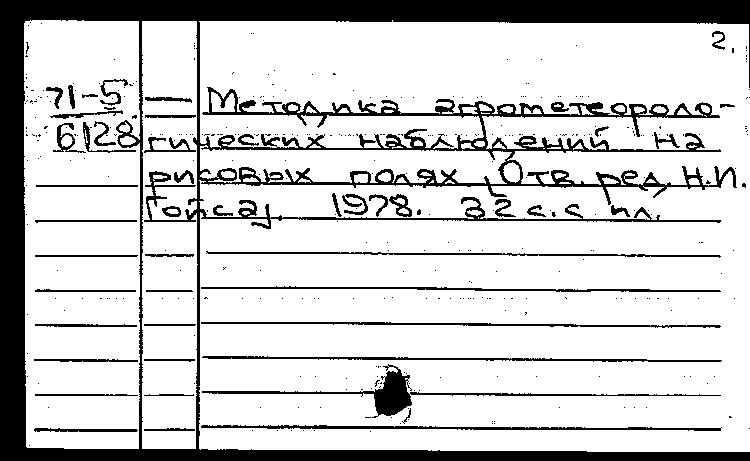 2.
71-5 — Методика агрометеороло-
6128 гических наблюдений на
рисовых полях. [Отв. ред. Н.И.
Гойса]. 1978. 32 с. с ил.